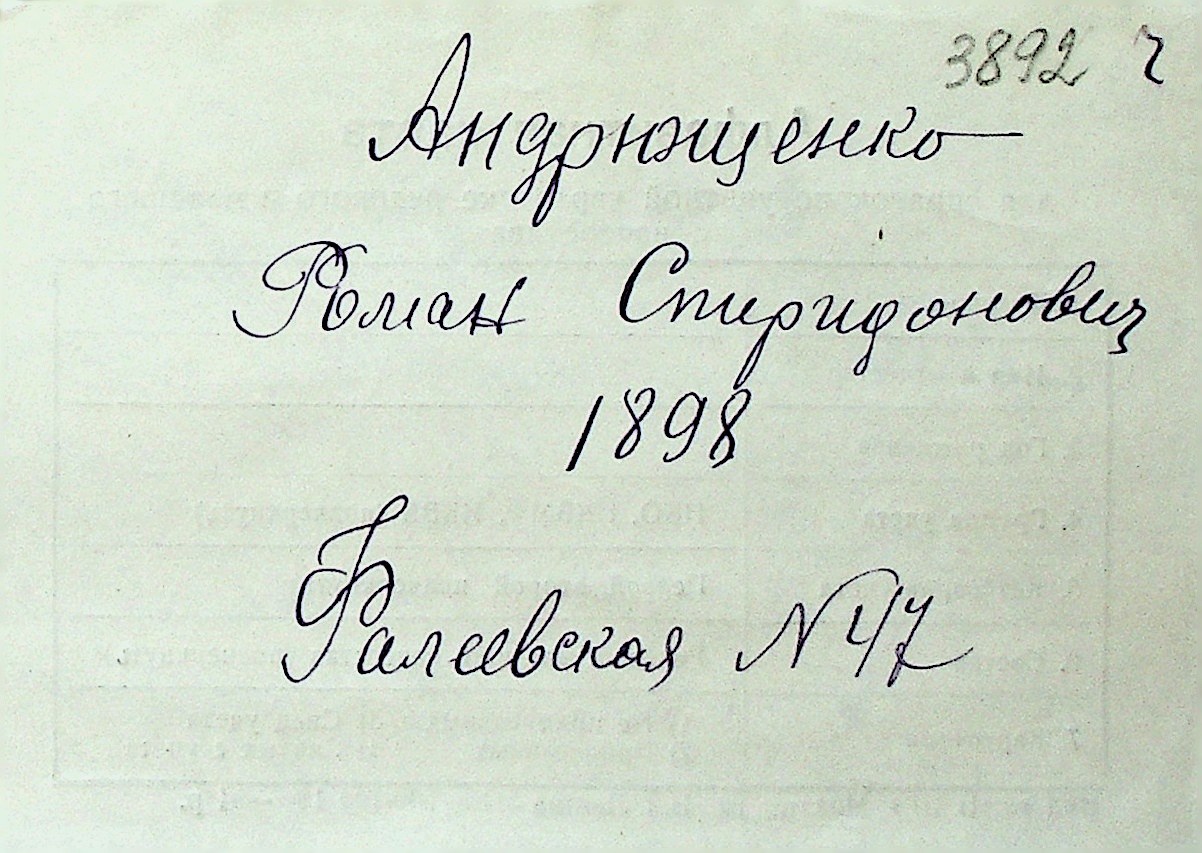 3892 ч
Андрющенко
Роман Спиридонович
1898
Фалеевская N 47